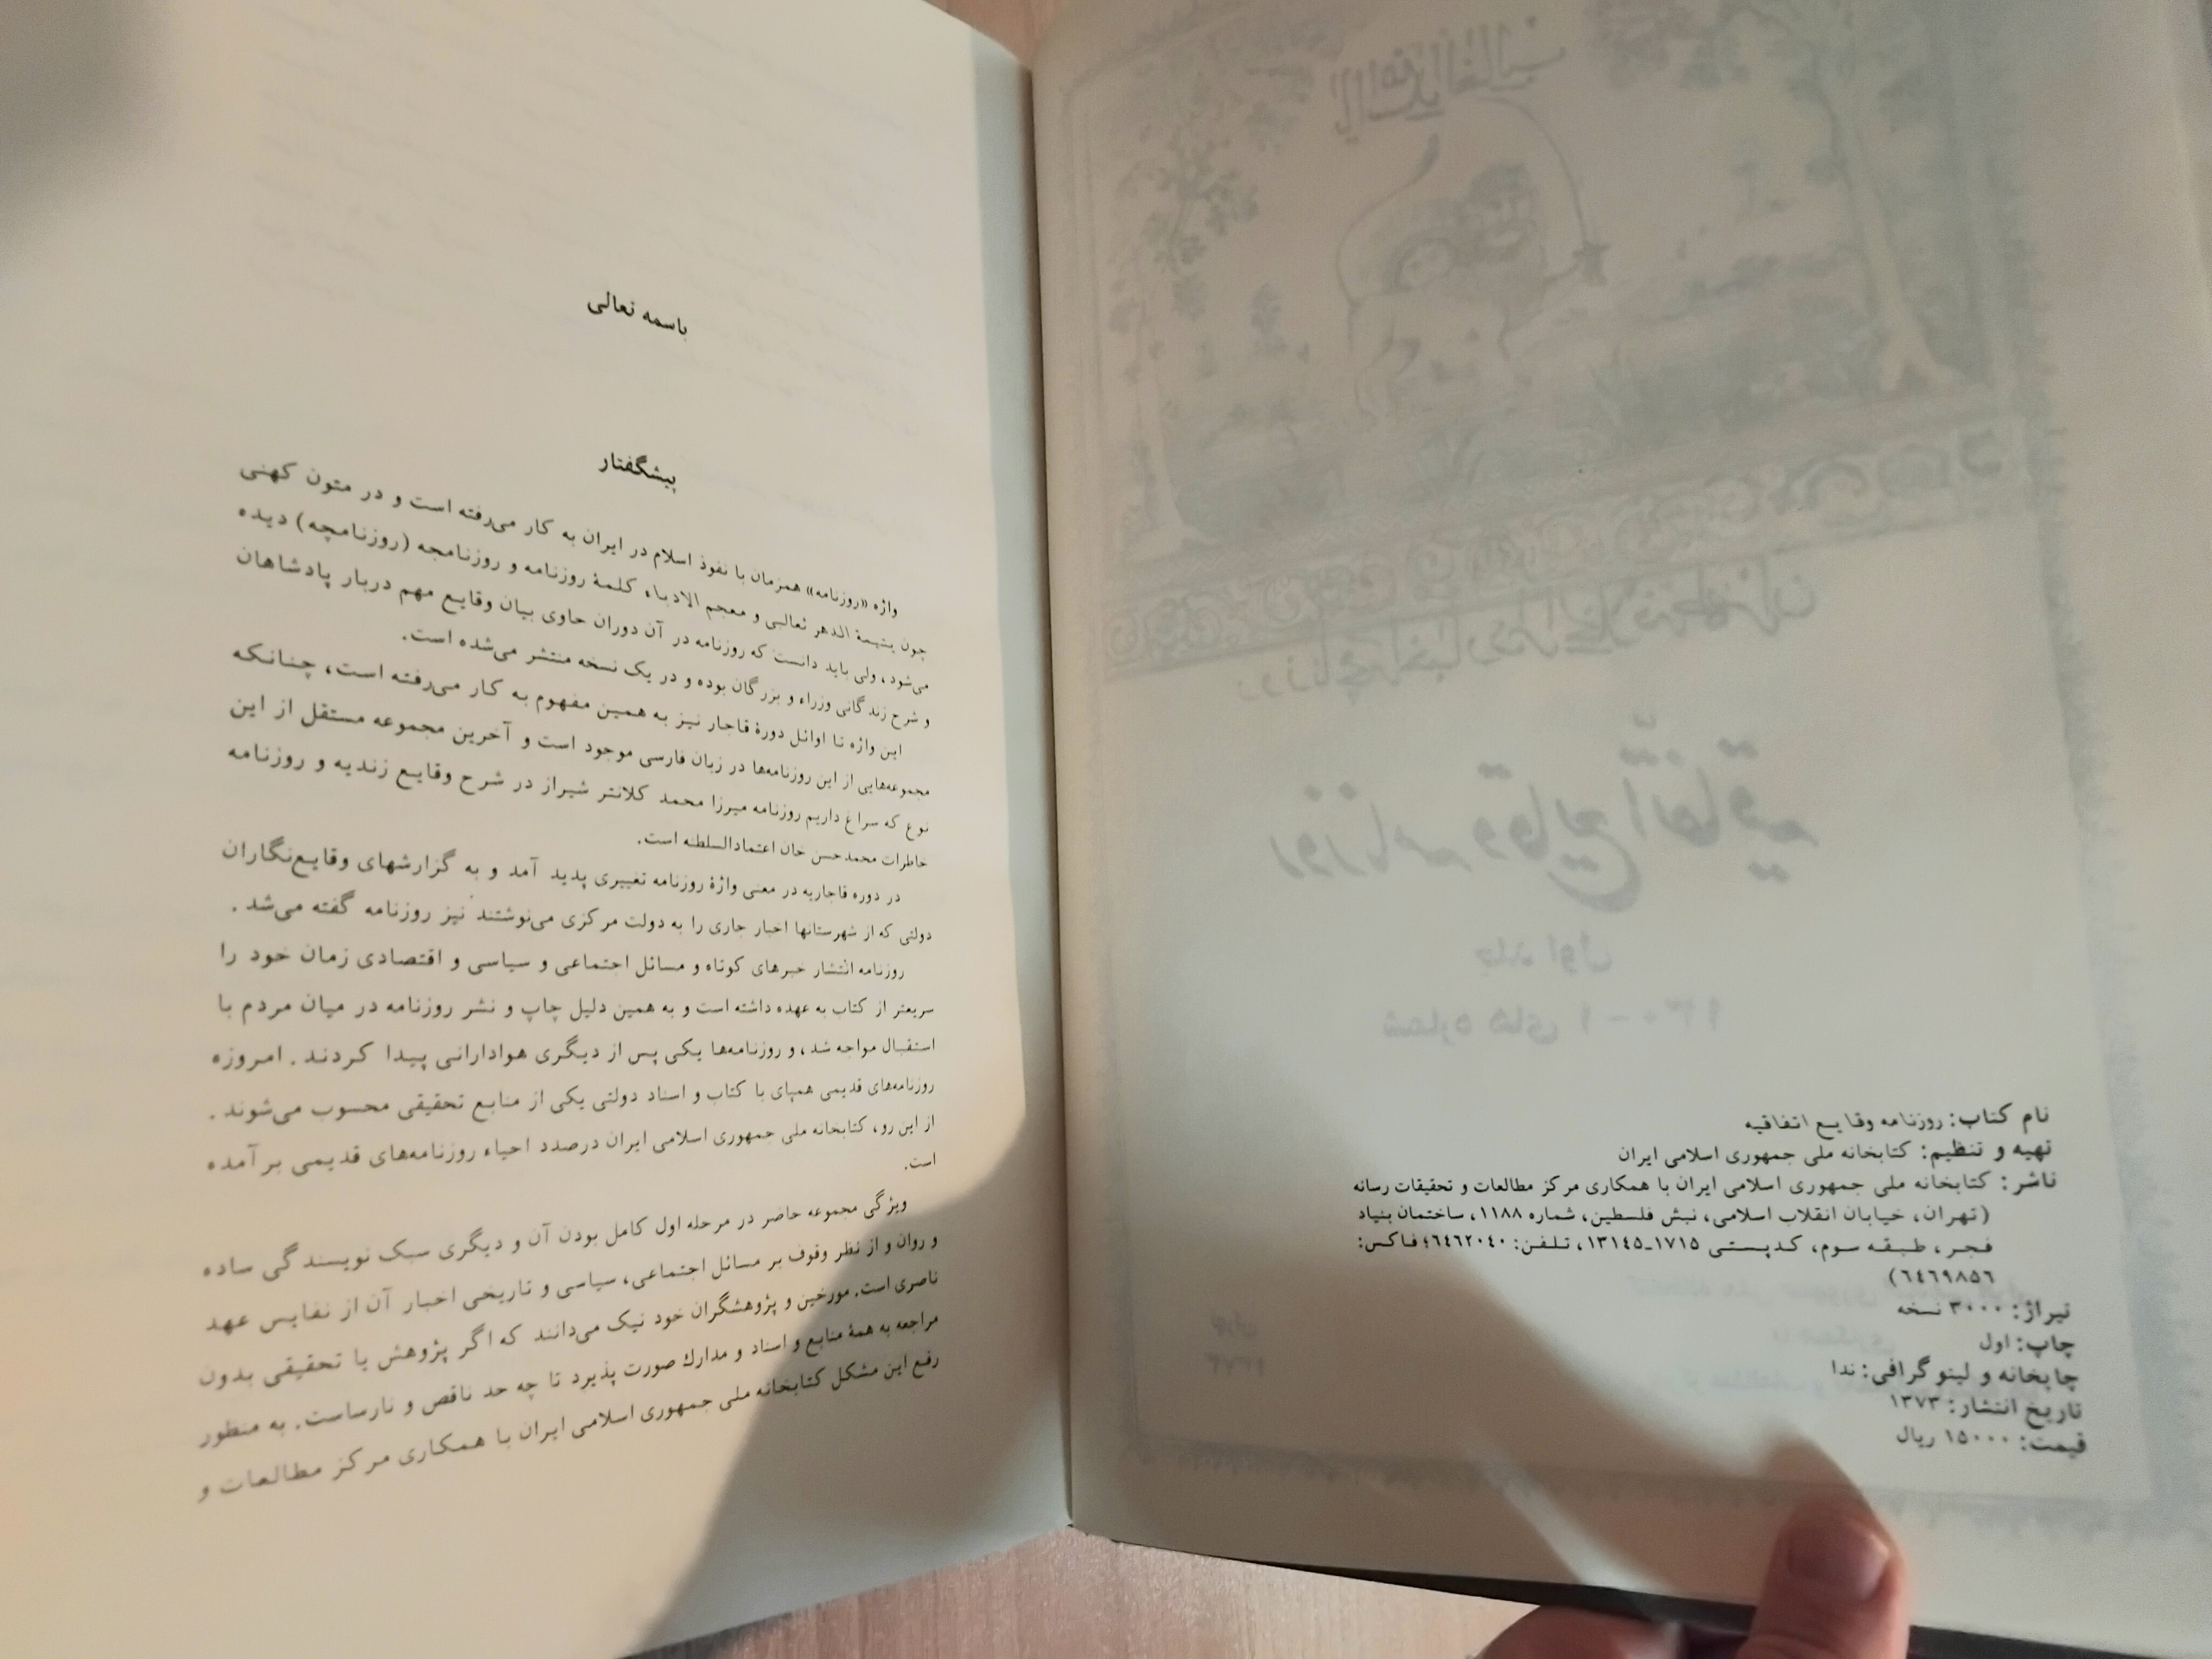 نام کتاب: روزنامه وقایع اتفاقیه
تهیه و تنظیم: کتابخانه ملی جمهوری اسلامی ایران
ناشر: کتابخانه ملی جمهوری اسلامی ایران با همکاری مرکز مطالعات و تحقیقات رسانه
(تهران، خیابان انقلاب اسلامی، نبش فلسطین، شماره ۱۱۸۸، ساختمان بنیاد
فجر، طبقه سوم، کدپستی ۱۷۱۵-۱۳۱۴۵، تلفن: ۶۴۶۲۰۴۰؛ فاکس:
۶۴۶۹۸۵۶)
تیراژ: ۳۰۰۰ نسخه
چاپ: اول
چاپخانه و لیتوگرافی: ندا
تاریخ انتشار: ۱۳۷۳
قیمت: ۱۵۰۰۰ ریال
باسمه تعالی
پیشگفتار
واژه «روزنامه» همزمان با نفوذ اسلام در ایران به کار می‌رفته است و در متون کهنی
چون یتیمة الدهر ثعالبی و معجم الادباء کلمهٔ روزنامه و روزنامجه (روزنامچه) دیده
می‌شود، ولی باید دانست که روزنامه در آن دوران حاوی بیان وقایع مهم دربار پادشاهان
و شرح زندگانی وزراء و بزرگان بوده و در یک نسخه منتشر می‌شده است.
این واژه تا اوائل دورهٔ قاجار نیز به همین مفهوم به کار می‌رفته است، چنانکه
مجموعه‌هایی از این روزنامه‌ها در زبان فارسی موجود است و آخرین مجموعه مستقل از این
نوع که سراغ داریم روزنامه میرزا محمد کلانتر شیراز در شرح وقایع زندیه و روزنامه
خاطرات محمدحسن خان اعتمادالسلطنه است.
در دوره قاجاریه در معنی واژهٔ روزنامه تغییری پدید آمد و به گزارشهای وقایع‌نگاران
دولتی که از شهرستانها اخبار جاری را به دولت مرکزی می‌نوشتند نیز روزنامه گفته می‌شد.
روزنامه انتشار خبرهای کوتاه و مسائل اجتماعی و سیاسی و اقتصادی زمان خود را
سریعتر از کتاب به عهده داشته است و به همین دلیل چاپ و نشر روزنامه در میان مردم با
استقبال مواجه شد، و روزنامه‌ها یکی پس از دیگری هوادارانی پیدا کردند. امروزه
روزنامه‌های قدیمی همپای با کتاب و اسناد دولتی یکی از منابع تحقیقی محسوب می‌شوند.
از این رو، کتابخانه ملی جمهوری اسلامی ایران درصدد احیاء روزنامه‌های قدیمی برآمده
است.
ویژگی مجموعه حاضر در مرحله اول کامل بودن آن و دیگری سبک نویسندگی ساده
و روان و از نظر وقوف بر مسائل اجتماعی، سیاسی و تاریخی اخبار آن از نفایس عهد
ناصری است. مورخین و پژوهشگران خود نیک می‌دانند که اگر پژوهش یا تحقیقی بدون
مراجعه به همهٔ منابع و اسناد و مدارك صورت پذیرد تا چه حد ناقص و نارساست. به منظور
رفع این مشکل کتابخانه ملی جمهوری اسلامی ایران با همکاری مرکز مطالعات و